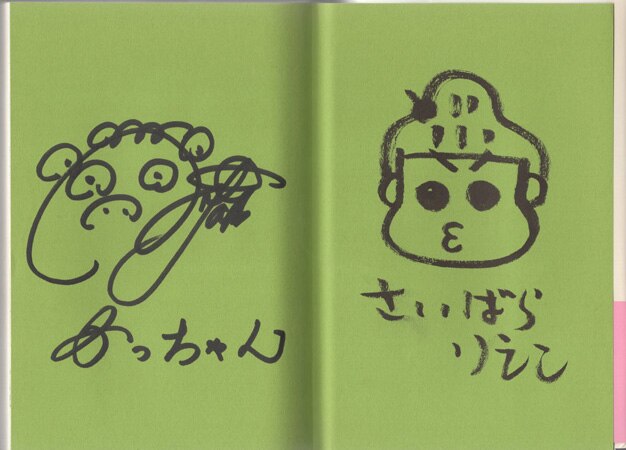 かっちゃん
さいばら
りえこ